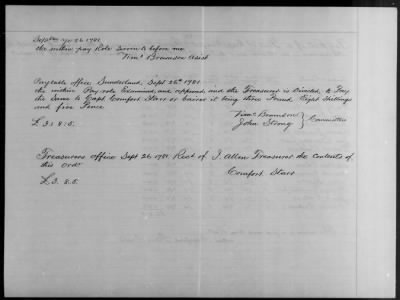 Septem ye 26 1781
the within pay Role Sworn to before me
Timo Brownson Assist
Paytable office Sunderland, Sept 26th 1781
the within Pay role Examined and approved and the Treasurer is Directed to Pay
the Same to Capt Comfort Starr or barior it being three Pound, Eight Shillings
and five Pence
£ 3: 8: 5. Timo Brownson } Committee
John Strong
Treasurers office Sept 26. 1781 Recd of I. Allen Treasurer the Contents of
this Ordr
Comfort Starr
£3. 8.5.